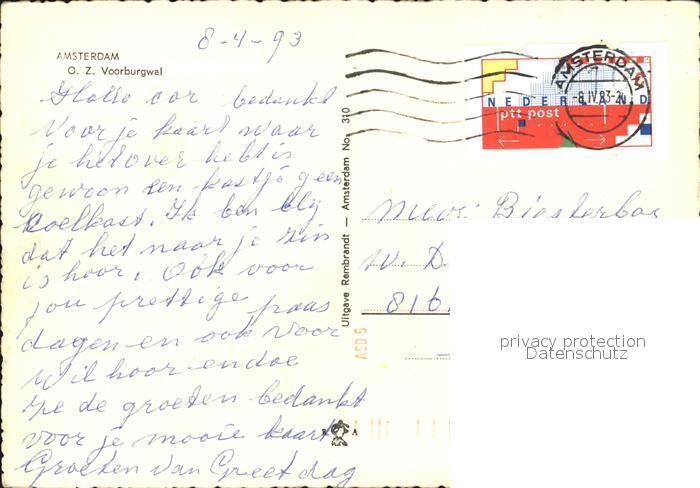 8-4-93
AMSTERDAM
O. Z. Voorburgwal
Hallo cor bedankt
voor je kaart waar
je het over hebt is
gewoon een kastje geen
koelkast. Ik ben bly
dat het naar je zin
is hoor. Ook voor
jou prettige paas
dagen en ook voor
wil hoor en doe
ze de groeten bedankt
voor je mooie kaart
Groeten van Greet dag
Uitgave Rembrandt — Amsterdam No. 310
AMSTERDAM
-8.IV.93-2
NEDERLAND
ptt post
Mevr. Biesterbos
W. D
816
ASD 5
R A
privacy protection
Datenschutz